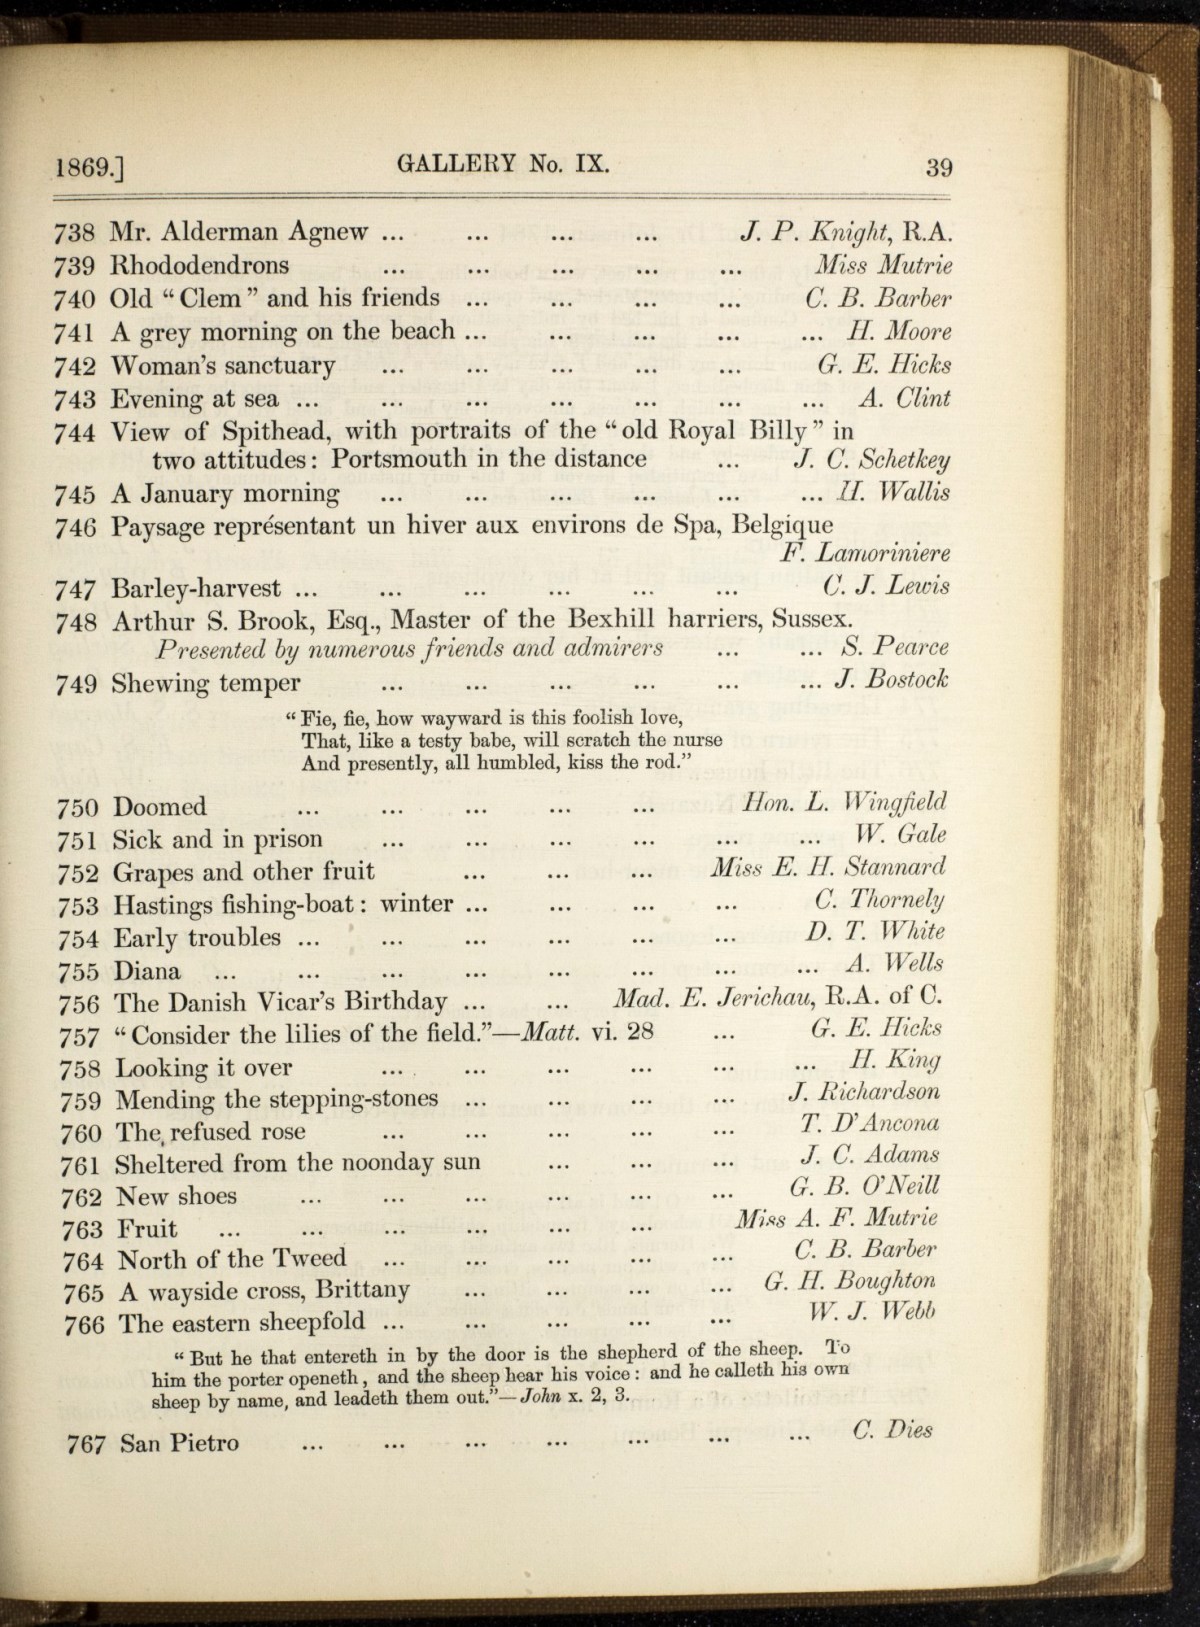 1869.] GALLERY No. IX. 39
738 Mr. Alderman Agnew ... ... ... ... J. P. Knight, R.A.
739 Rhododendrons ... ... ... ... ... Miss Mutrie
740 Old “Clem” and his friends ... ... ... ... C. B. Barber
741 A grey morning on the beach ... ... ... ... ... H. Moore
742 Woman’s sanctuary ... ... ... ... ... G. E. Hicks
743 Evening at sea ... ... ... ... ... ... ... A. Clint
744 View of Spithead, with portraits of the “old Royal Billy” in
two attitudes: Portsmouth in the distance ... J. C. Schetkey
745 A January morning ... ... ... ... ... ... H. Wallis
746 Paysage représentant un hiver aux environs de Spa, Belgique
F. Lamoriniere
747 Barley-harvest ... ... ... ... ... ... C. J. Lewis
748 Arthur S. Brook, Esq., Master of the Bexhill harriers, Sussex.
Presented by numerous friends and admirers ... ... S. Pearce
749 Shewing temper ... ... ... ... ... ... J. Bostock
“Fie, fie, how wayward is this foolish love,
That, like a testy babe, will scratch the nurse
And presently, all humbled, kiss the rod.”
750 Doomed ... ... ... ... ... Hon. L. Wingfield
751 Sick and in prison ... ... ... ... ... ... W. Gale
752 Grapes and other fruit ... ... ... Miss E. H. Stannard
753 Hastings fishing-boat: winter ... ... ... ... C. Thornely
754 Early troubles ... ... ... ... ... ... D. T. White
755 Diana ... ... ... ... ... ... ... ... A. Wells
756 The Danish Vicar’s Birthday ... ... Mad. E. Jerichau, R.A. of C.
757 “Consider the lilies of the field.”—Matt. vi. 28 ... G. E. Hicks
758 Looking it over ... ... ... ... ... ... H. King
759 Mending the stepping-stones ... ... ... ... J. Richardson
760 The refused rose ... ... ... ... ... T. D’Ancona
761 Sheltered from the noonday sun ... ... ... J. C. Adams
762 New shoes ... ... ... ... ... ... G. B. O’Neill
763 Fruit ... ... ... ... ... ... Miss A. F. Mutrie
764 North of the Tweed ... ... ... ... ... C. B. Barber
765 A wayside cross, Brittany ... ... ... ... G. H. Boughton
766 The eastern sheepfold ... ... ... ... ... W. J. Webb
“But he that entereth in by the door is the shepherd of the sheep. To
him the porter openeth, and the sheep hear his voice: and he calleth his own
sheep by name, and leadeth them out.”—John x. 2, 3.
767 San Pietro ... ... ... ... ... ... ... C. Dies